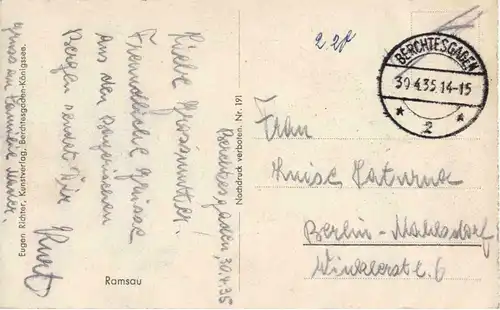 Berchtesgaden, 30.4.35
Liebe Grossmutter!
Freundliche Grüsse
aus den
Bergen sendet Dir
Kurt
Gruss an Familie
Ramsau
Eugen Richter, Kunstverlag, Berchtesgaden-Königssee.
Nachdruck verboten. Nr. 191
BERCHTESGADEN
30.4.35.14-15
* 2 *
Frau
Luise
Berlin-Mahlsdorf
Winklerstr. 6